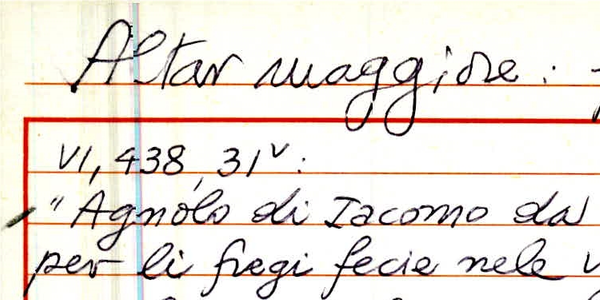 Altar maggiore :
VI, 438, 31v :
"Agnolo di Iacomo da
per li fregi fecie nele